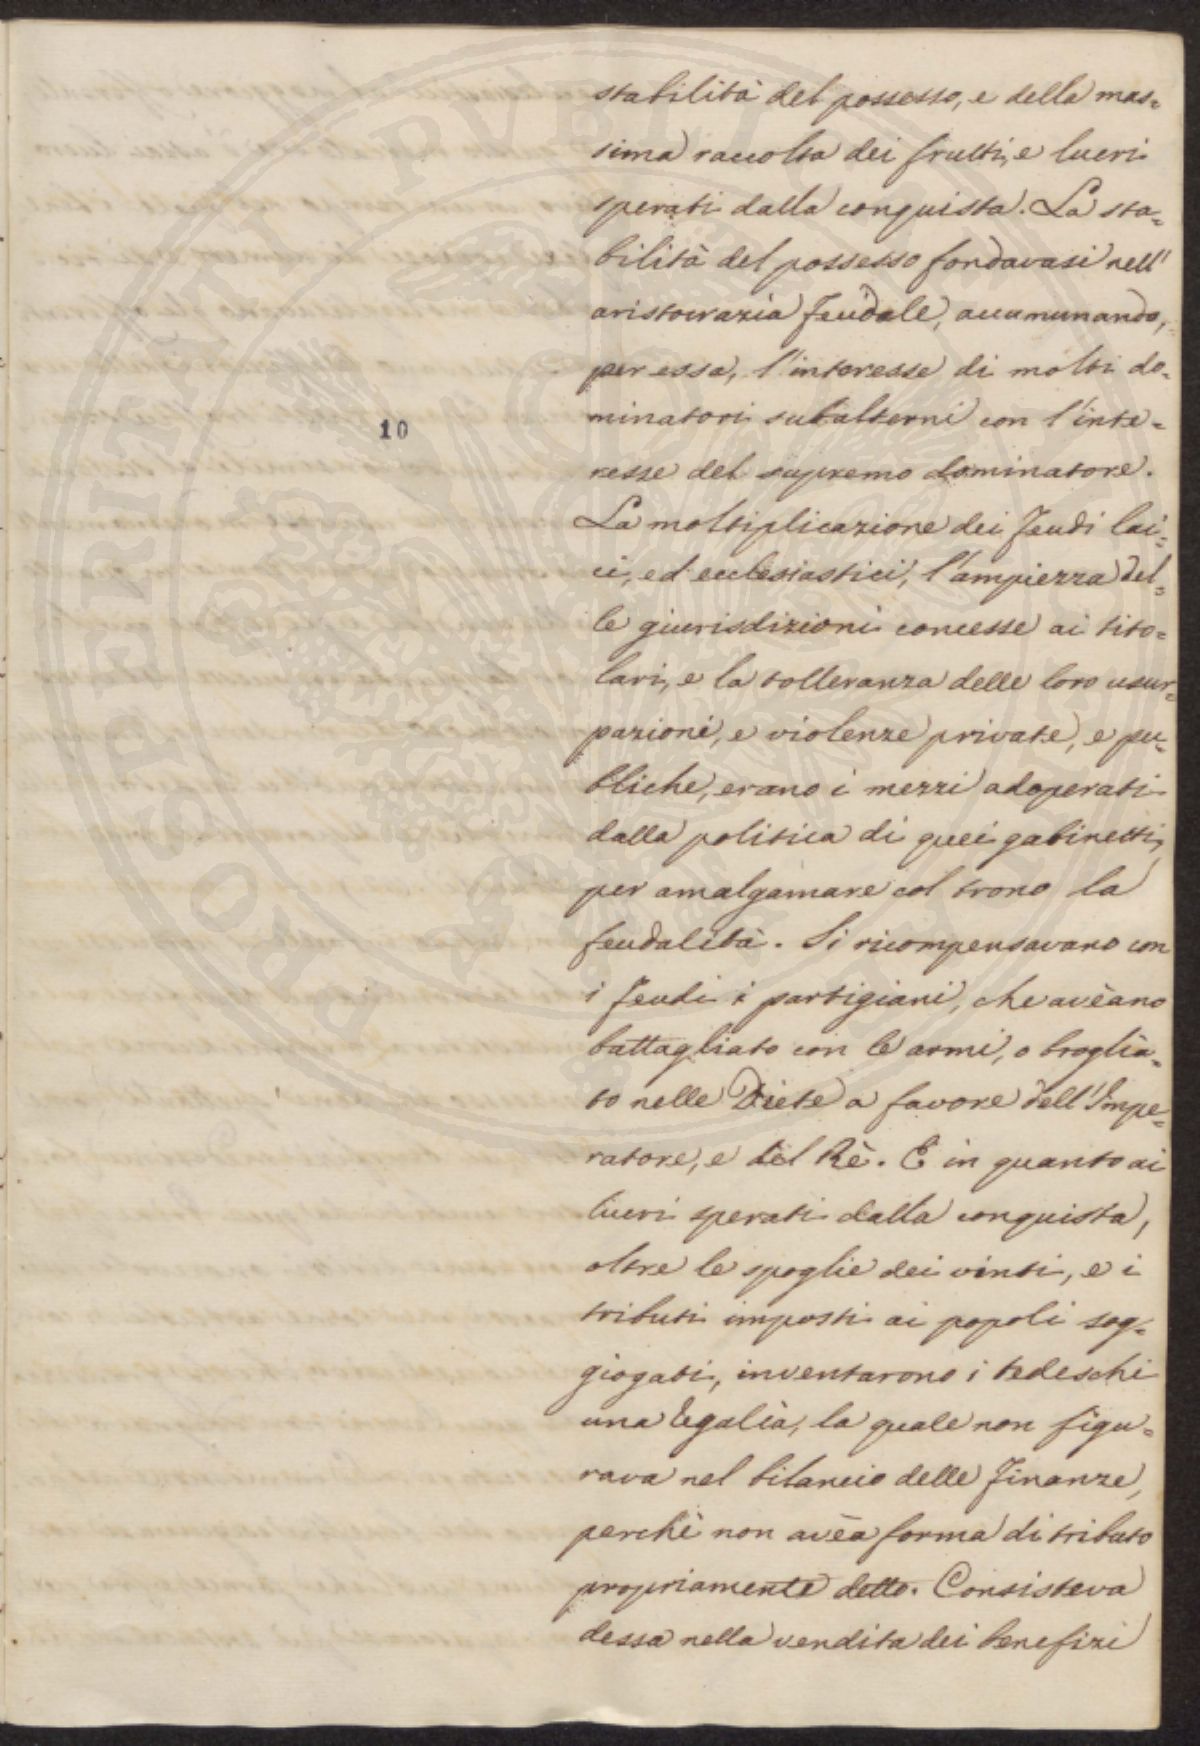 stabilità del possesso, e della mas=
sima raccolta dei frutti, e lucri
sperati dalla conquista. La sta=
bilità del possesso fondavasi nell'
aristocrazia feudale, accumunando,
per essa, l'interesse di molti do=
minatori subalterni con l'inte=
10
resse del supremo dominatore.
La moltiplicazione dei feudi lai=
ci, ed ecclesiastici, l'ampiezza del=
le giurisdizioni concesse ai tito=
lari, e la tolleranza delle loro usur=
pazioni, e violenze private, e pu=
bliche, erano i mezzi adoperati
dalla politica di quei gabinetti,
per amalgamare col trono la
feudalità. Si ricompensavano con
i feudi i partigiani, che avèano
battagliato con le armi, o broglia=
to nelle Diete a favore dell'Impe=
ratore, e del Rè. E in quanto ai
lucri sperati dalla conquista,
oltre le spoglie dei vinti, e i
tributi imposti ai popoli sog=
giogati, inventarono i tedeschi
una Regalìa, la quale non figu=
rava nel bilancio delle finanze,
perchè non avèa forma di tributo
propriamente detto. Consisteva
dessa nella vendita dei benefizi